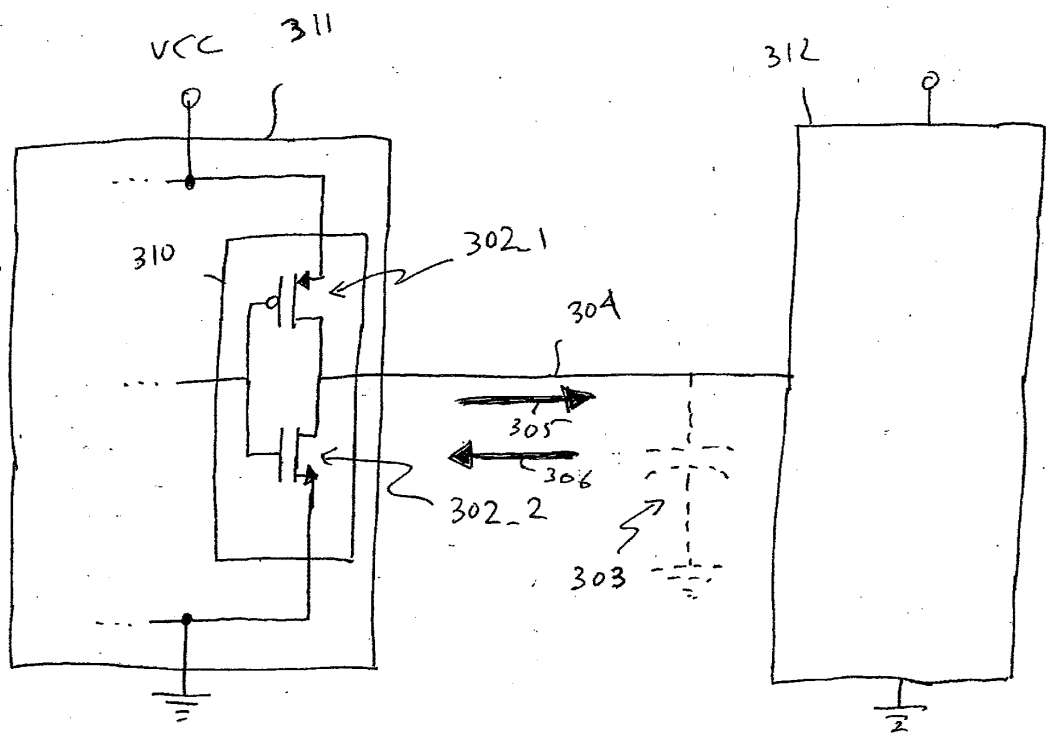 311
VCC
312
310
302_1
304
305
306
302_2
303